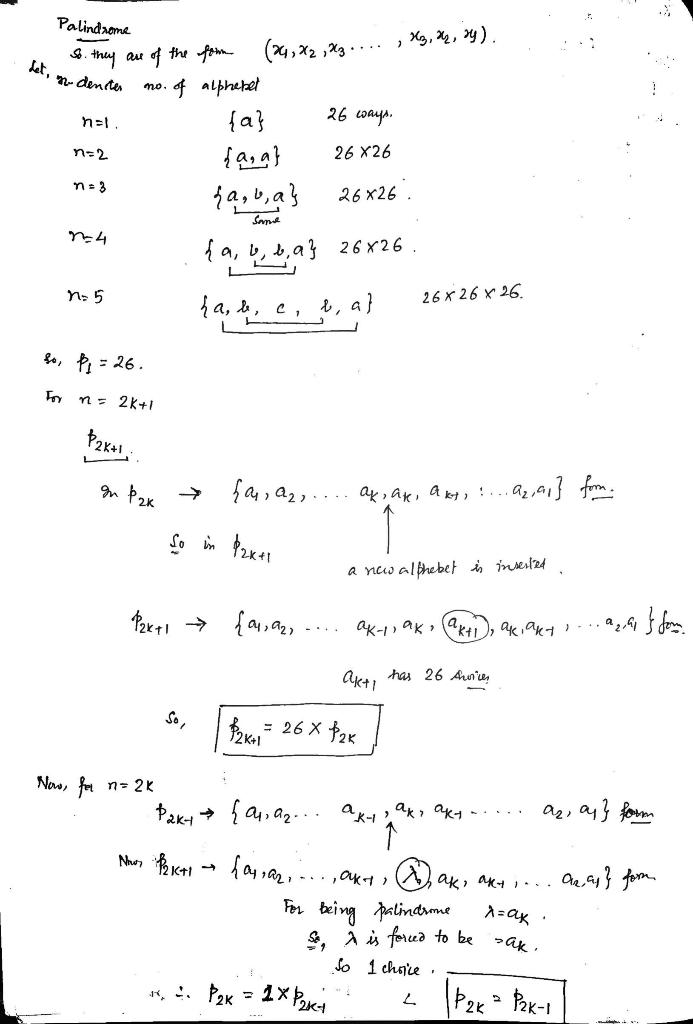 Palindrome
So. they are of the form (x1, x2, x3 .... , x3, x2, x1).
Let, n denotes no. of alphabet
n=1. {a} 26 ways.
n=2 {a,a} 26 X26
n=3 {a,b,a} 26X26.
Same
n=4 {a, b, b, a} 26X26.
n=5 {a, b, c, b, a} 26 X 26 X 26.
So, P1 = 26.
For n = 2K+1
P2K+1.
In P2K → {a1, a2, .... aK, aK, aK-1, ... a2, a1} form.
So in P2K+1
a new alphebet is inserted.
P2K+1 → {a1, a2, .... aK-1, aK, aK+1, aK, aK-1, ... a2, a1} form.
aK+1 has 26 choices
So, P2K+1 = 26 X P2K
Now, for n = 2K
P2K-1 → {a1, a2... aK-1, aK, aK-1 ..... a2, a1} form
Now P2K+1 → {a1, a2, ..., aK-1, λ, aK, aK-1, ... a2, a1} form
For being palindrome λ=aK.
So, λ is forced to be =aK.
So 1 choice.
∴ P2K = 1 X P2K-1 P2K = P2K-1